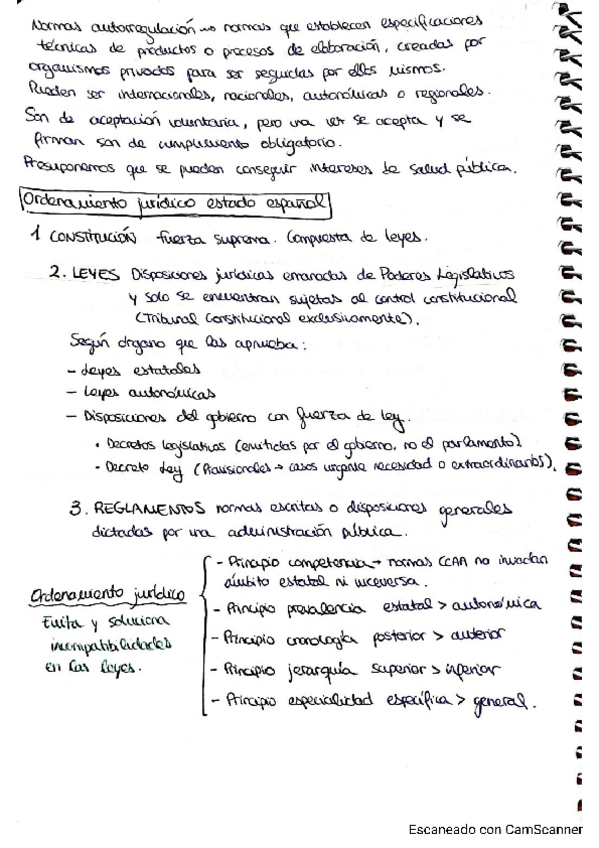 Normas autorregulación → normas que establecen especificaciones
técnicas de productos o procesos de elaboración, creadas por
organismos privados para ser seguidas por ellos mismos.
Pueden ser internacionales, nacionales, autonómicas o regionales.
Son de aceptación voluntaria, pero una vez se acepta y se
firman son de cumplimiento obligatorio.
Presuponemos que se pueden conseguir intereses de salud pública.
Ordenamiento jurídico estado español
1 CONSTITUCIÓN fuerza suprema. Compuesta de leyes.
2. LEYES Disposiciones jurídicas emanadas de Poderes Legislativos
y solo se encuentran sujetas al control constitucional
(Tribunal Constitucional exclusivamente).
Según órgano que las aprueba:
- Leyes estatales
- Leyes autonómicas
- Disposiciones del gobierno con fuerza de ley.
• Decretos legislativos (emitidas por el gobierno, no el parlamento)
• Decreto Ley (Provisionales → casos urgente necesidad o extraordinarios).
3. REGLAMENTOS normas escritas o disposiciones generales
dictadas por una administración pública.
Ordenamiento jurídico
Evita y soluciona
incompatibilidades
en las leyes.
- Principio competencia → normas CCAA no invadan
ámbito estatal ni viceversa.
- Principio prevalencia estatal > autonómica
- Principio cronología posterior > anterior
- Principio jerarquía superior > inferior
- Principio especialidad específica > general.
Escaneado con CamScanner